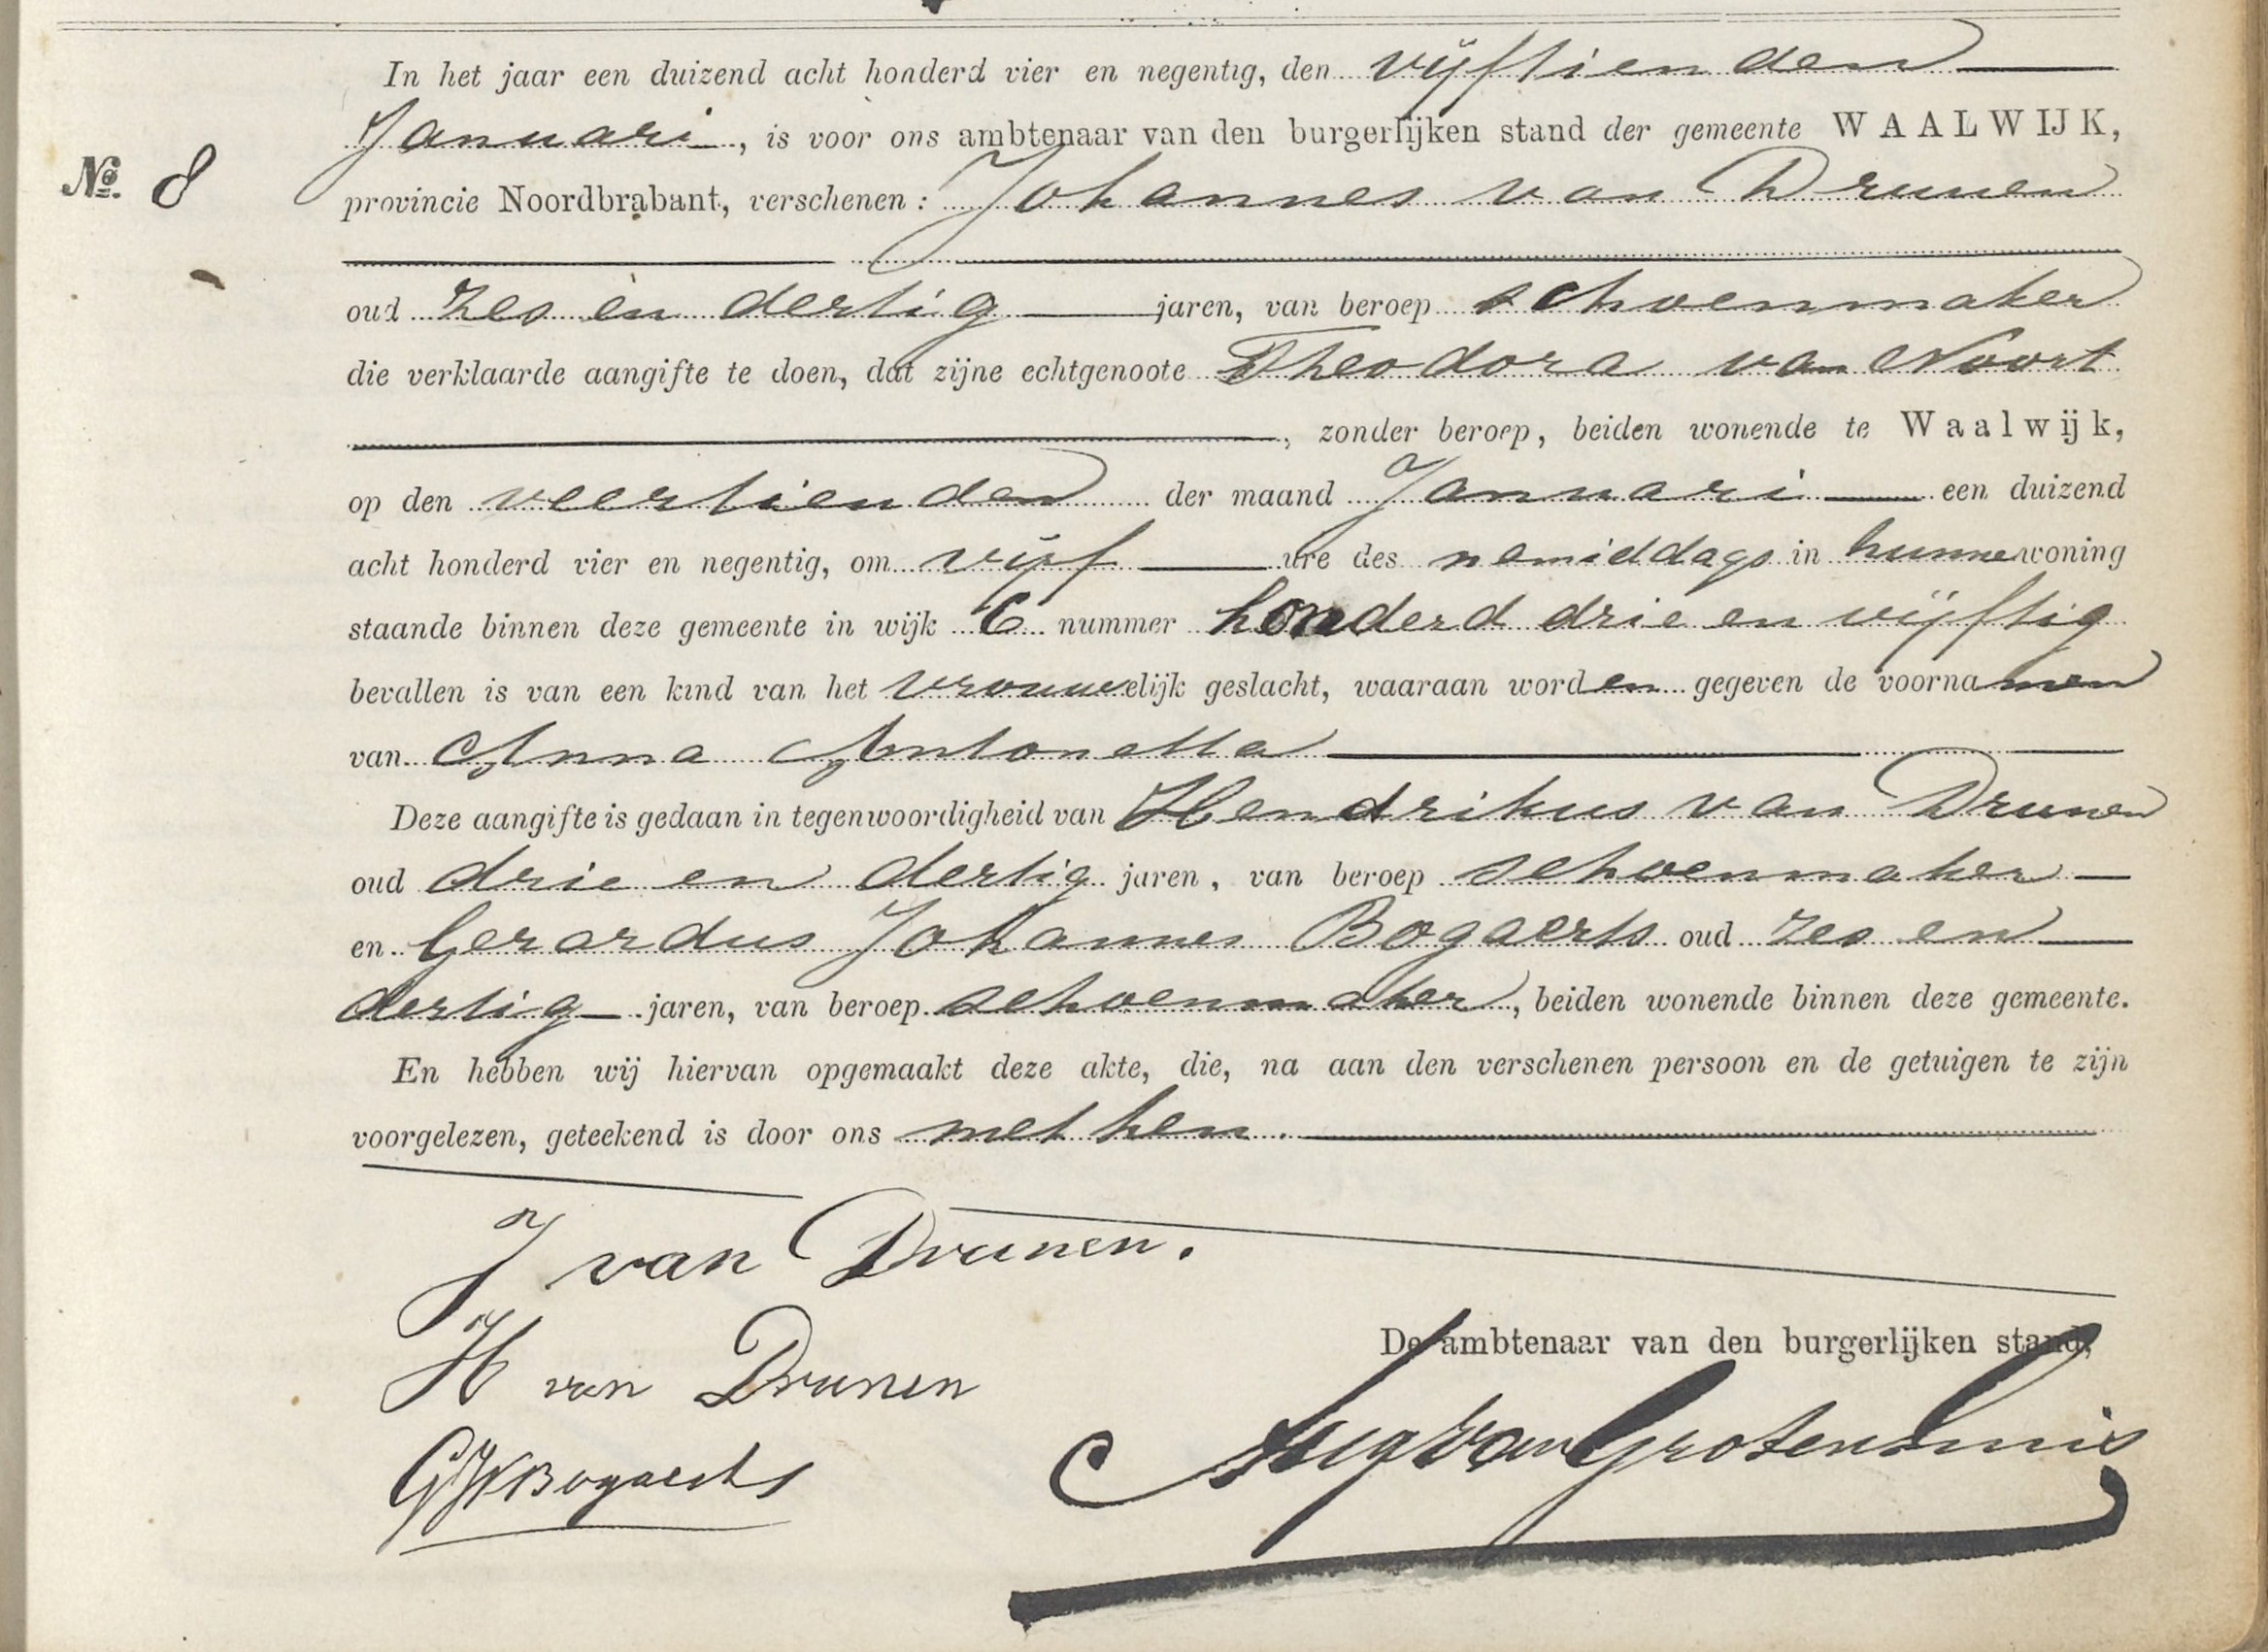 In het jaar een duizend acht honderd vier en negentig, den vijftienden
Januari, is voor ons ambtenaar van den burgerlijken stand der gemeente WAALWIJK,
No. 8
provincie Noordbrabant, verschenen: Johannes van Drunen
oud zes en dertig jaren, van beroep schoenmaker
die verklaarde aangifte te doen, dat zijne echtgenoote Theodora van Noort
, zonder beroep, beiden wonende te Waalwijk,
op den veertienden der maand Januari een duizend
acht honderd vier en negentig, om vijf ure des namiddags in hunne woning
staande binnen deze gemeente in wijk C nummer honderd drie en vijftig
bevallen is van een kind van het vrouwelijk geslacht, waaraan worden gegeven de voornamen
van Anna Antonetta
Deze aangifte is gedaan in tegenwoordigheid van Hendrikus van Drunen
oud drie en dertig jaren, van beroep schoenmaker
en Gerardus Johannes Bogaerts oud zes en
dertig jaren, van beroep schoenmaker, beiden wonende binnen deze gemeente.
En hebben wij hiervan opgemaakt deze akte, die, na aan den verschenen persoon en de getuigen te zijn
voorgelezen, geteekend is door ons met hen.
J van Drunen.
H van Drunen
De ambtenaar van den burgerlijken stand,
Bogaerts
van Grotenhuis